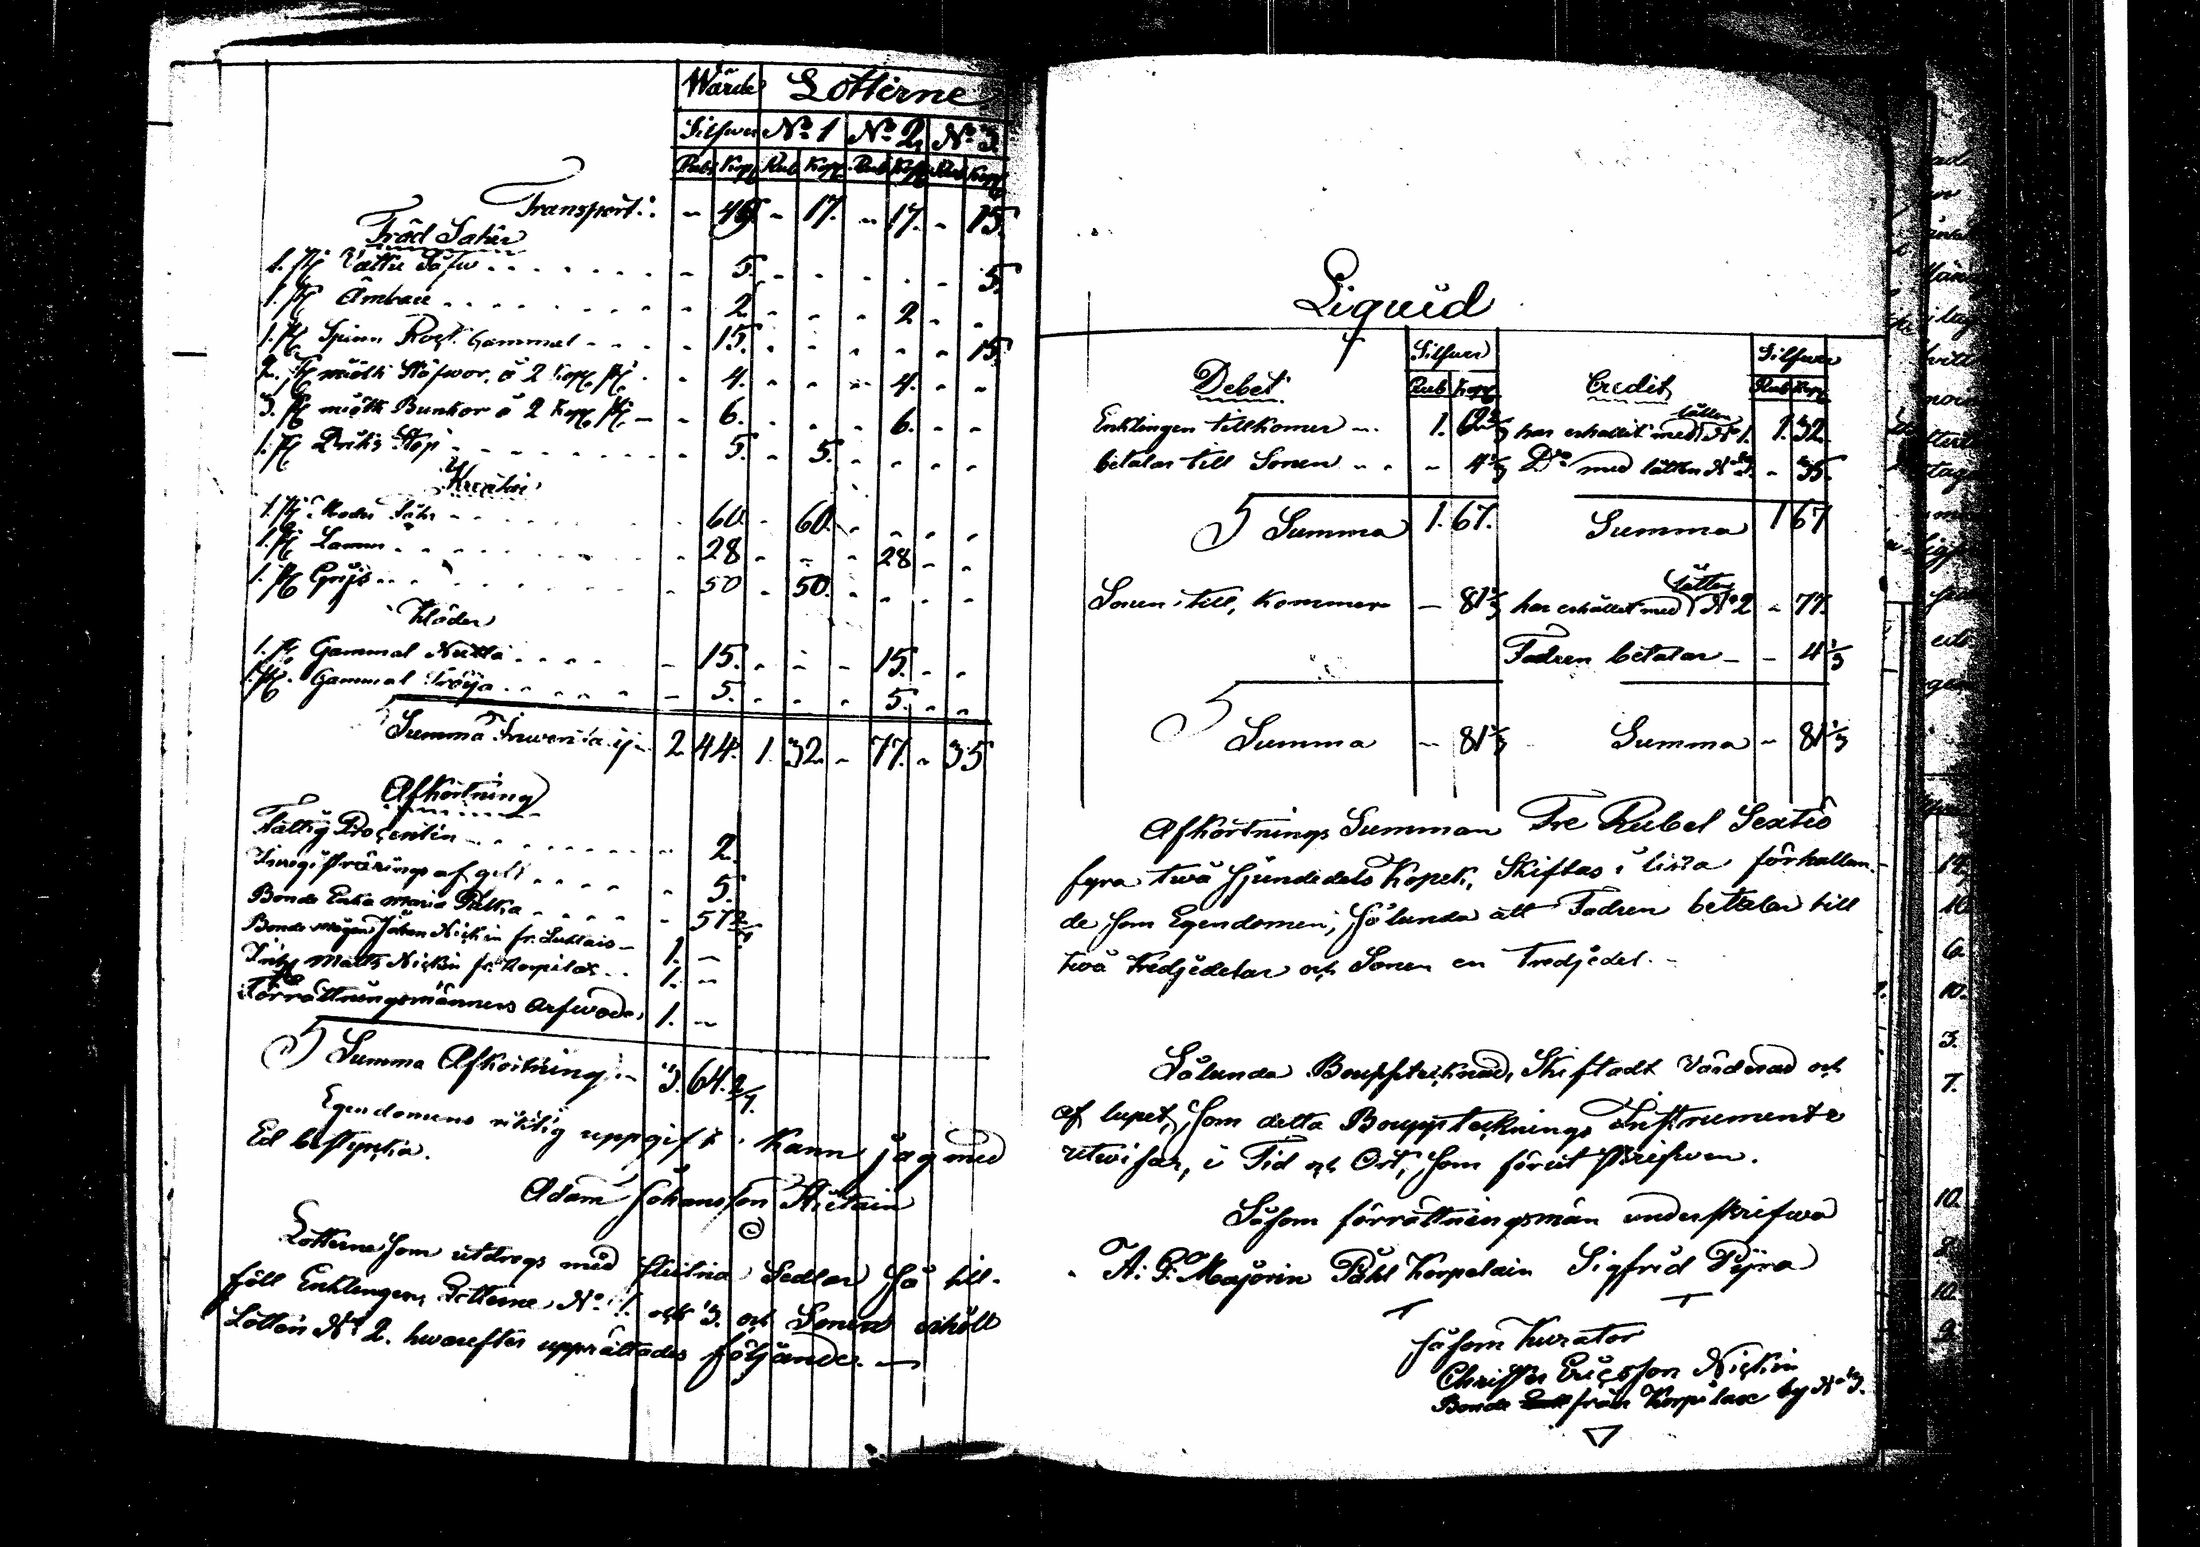 Wärde Lotterne
Silfwer No 1 No 2 No 3
Rub Kop Rub Kop Rub Kop Rub Kop
Transport: - 49 - 17. - 17. - 15.
Träd Saker
1. st Vatu Såfw - 5. - - - - - 5.
1. st Ämbare - 2 - - - 2 - -
1. st Spinn Rock Gammal - 15. - - - - - 15.
2. st miölk Stäfwor, á 2 Kop st - 4. - - - 4. - -
3. st miölk Bunkor á 2 Kop st - 6. - - - 6. - -
1. st Driks Stop - 5. - 5. - - - -
Kreatur
1. st Moder Får - 60. - 60. - - - -
1. st Lamm - 28 - - - 28 - -
1. st Grijs - 50 - 50. - - - -
Kläder
1. st Gammal - 15. - - - 15. - -
1. st. Gammal Tröija - 5. - - - 5. - -
Summa Inventarij 2 44. 1. 32. - 77. - 35
Afkortning
Fattig Procenten - 2.
Inregistrerings afgift - 5.
Bonde Enka Maria - 57 2/7
Bonde Mågen Johan Nickin fr. 1. -
Matts Nickin fr. Korpilax 1. -
Förrättningsmännens Arfwode 1. -
Summa Afkortning 3. 64. 2/7.
Egendomens riktig uppgift kann jag med
Ed bestyrcka.
Adam Johansson
Lotterne som utdrogs med slutna Sedlar så till-
föll Enklingen Lotterne No 1. och 3. och Sonen erhöllt
Lotten No 2. hwarefter upprättades följande. -
Liquid
Debet Silfwer Credit Silfwer
Rub Kop Rub Kop
Enklingen tillkomer 1. 62 2/3 har erhållit med lotten No 1. 1. 32.
betalar till Sonen - 4 1/3 Do med lotten No 3. - 35.
Summa 1. 67. Summa 1 67
Sonen till, kommer - 81 1/3 har erhållit med lotten No 2 - 77.
Fadren betalar - - 4 1/3
Summa - 81 1/3 Summa - 81 1/3
Afkortnings Summan Tre Rubel Sextio
fyra två sjundedels Kopek, Skiftas i lika förhållan-
de som Egendomen, sålunda att Fadren betalar till
två tredjedelar och Sonen en Tredjedel. -
Sålunda Bouppteknad, Skiftadt Värderad och
af lupet, som detta Boupptecknings Instrumente
utwisar, i Tid och Ort, som förut skrifwen.
Såsom förrättningsmän underskrifwa
A: G: Majorin Påhl Korpelain Sigfrid Pyra
såsom Kurator
Christer Ericsson Nickin
Bonde från Korpilax by No 3.